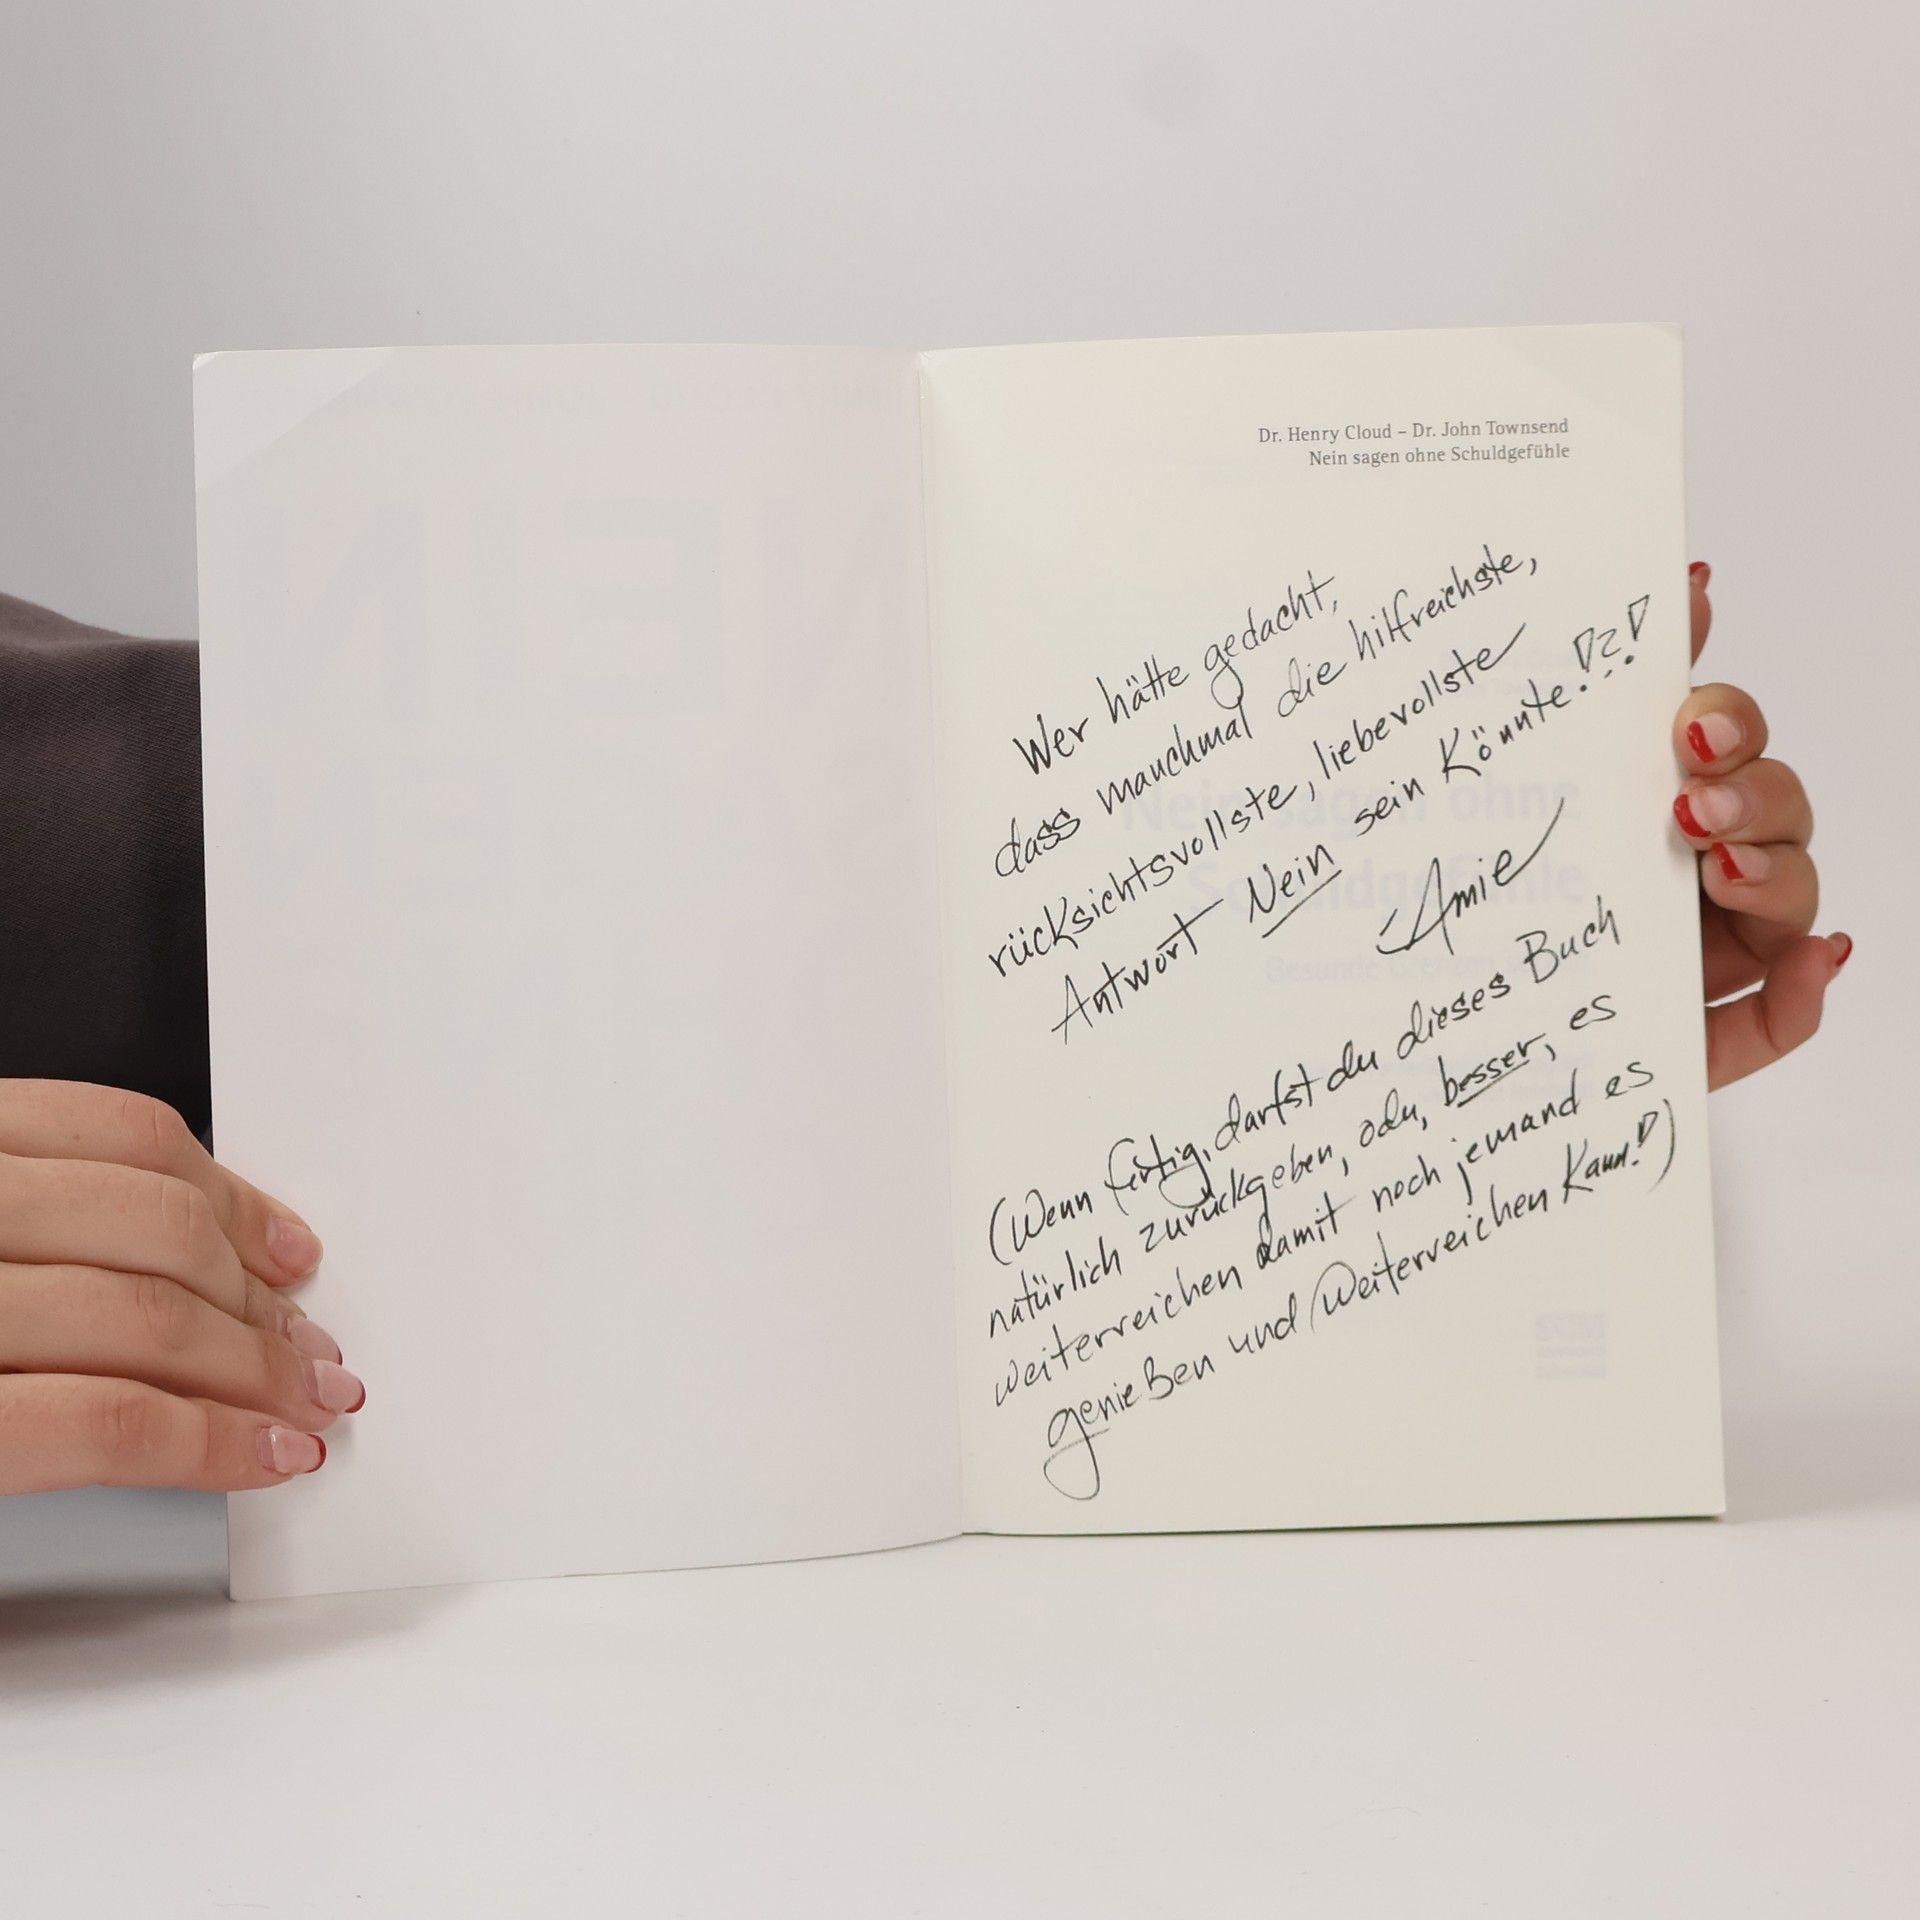 Dr. Henry Cloud – Dr. John Townsend
Nein sagen ohne Schuldgefühle
Wer hätte gedacht,
dass manchmal die hilfreichste,
rücksichtsvollste, liebevollste
Antwort Nein sein Könnte!?!
-Amie
(Wenn fertig, darfst du dieses Buch
natürlich zurückgeben, oder, besser, es
weiterreichen damit noch jemand es
genießen und weiterreichen Kann!)
Nein sagen ohne
Schuldgefühle
Gesunde Grenzen